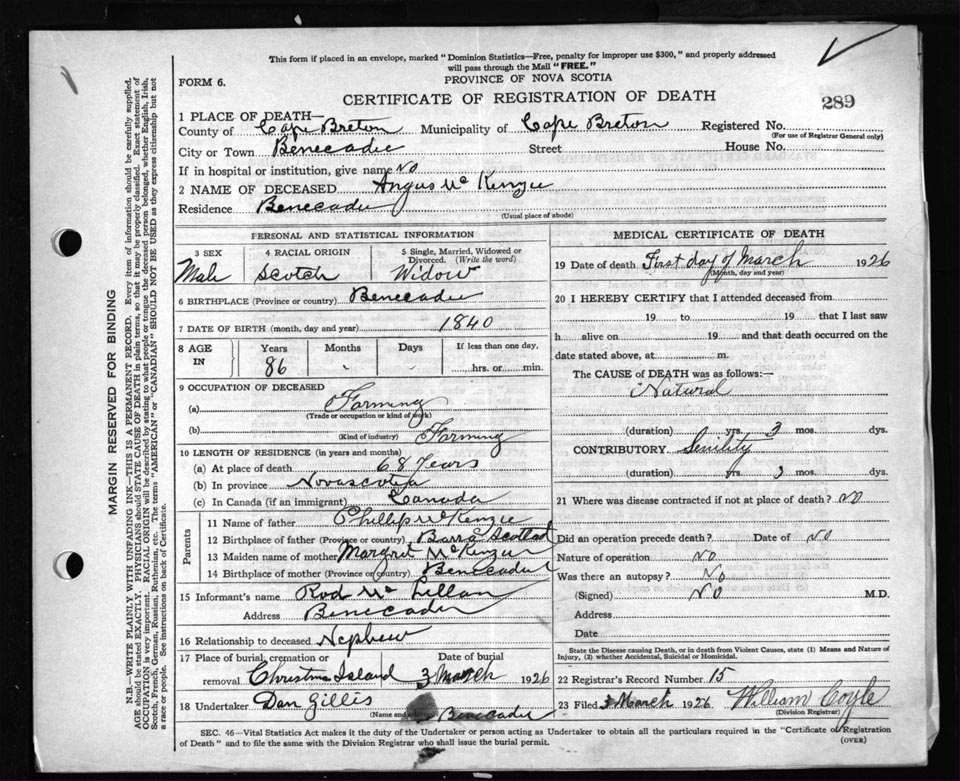 This form if placed in an envelope, marked "Dominion Statistics—Free, penalty for improper use $300," and properly addressed
will pass through the Mail "FREE."
FORM 6.
PROVINCE OF NOVA SCOTIA
CERTIFICATE OF REGISTRATION OF DEATH
289
1 PLACE OF DEATH—
County of Cape Breton Municipality of Cape Breton Registered No.
(For use of Registrar General only)
City or Town Benecadie Street House No.
If in hospital or institution, give name No
2 NAME OF DECEASED Angus McKenzie
Residence Benecadie
(Usual place of abode)
PERSONAL AND STATISTICAL INFORMATION
3 SEX 4 RACIAL ORIGIN 5 Single, Married, Widowed or Divorced. (Write the word)
Male Scotch Widow
6 BIRTHPLACE (Province or country) Benecadie
7 DATE OF BIRTH (month, day and year) 1840
8 AGE IN Years Months Days If less than one day,
86 hrs. or min.
9 OCCUPATION OF DECEASED
(a) Farming
(Trade or occupation or kind of work)
(b) Farming
(Kind of industry)
10 LENGTH OF RESIDENCE (in years and months)
(a) At place of death 68 Years
(b) In province Novascotia
(c) In Canada (if an immigrant) Canada
Parents
11 Name of father Phillip McKenzie
12 Birthplace of father (Province or country) Barra Scotland
13 Maiden name of mother Margret McKenzie
14 Birthplace of mother (Province or country) Benecadie
15 Informant's name Rod McLellan
Address Benecadie
16 Relationship to deceased Nephew
17 Place of burial, cremation or removal Christmas Island Date of burial 3 March 1926
18 Undertaker Dan Gillis
(Name and Benecadie
MEDICAL CERTIFICATE OF DEATH
19 Date of death First day of March 1926
(Month, day and year)
20 I HEREBY CERTIFY that I attended deceased from
19 to 19 that I last saw
h alive on 19 and that death occurred on
date stated above, at m.
The CAUSE of DEATH was as follows:—
Natural
(duration) yrs. 3 mos. dys.
CONTRIBUTORY Senility
(duration) yrs. 3 mos. dys.
21 Where was disease contracted if not at place of death? No
Did an operation precede death? Date of No
Nature of operation No
Was there an autopsy? No
(Signed) No M.D.
Address
Date
State the Disease causing Death, or in death from Violent Causes, state (1) Means and Nature of
Injury, (2) whether Accidental, Suicidal or Homicidal.
22 Registrar's Record Number 15
23 Filed 3 March 1926 William Coyle
(Division Registrar)
SEC. 46—Vital Statistics Act makes it the duty of the Undertaker or person acting as Undertaker to obtain all the particulars required in the "Certificate of Registration
of Death" and to file the same with the Division Registrar who shall issue the burial permit.
(OVER)
MARGIN RESERVED FOR BINDING
N.B.—WRITE PLAINLY WITH UNFADING INK—THIS IS A PERMANENT RECORD. Every item of information should be carefully supplied.
AGE should be stated EXACTLY. PHYSICIANS should STATE CAUSE OF DEATH in plain terms, so that it may be properly classified. Exact statement of
OCCUPATION is very important. RACIAL ORIGIN will be described by stating to what people or tongue the deceased person belonged, whether English, Irish,
Scotch, French, German, Russian, Ruthenian, etc. The terms "AMERICAN" or "CANADIAN" SHOULD NOT BE USED as they express citizenship but not
a race or people. See instructions on back of Certificate.